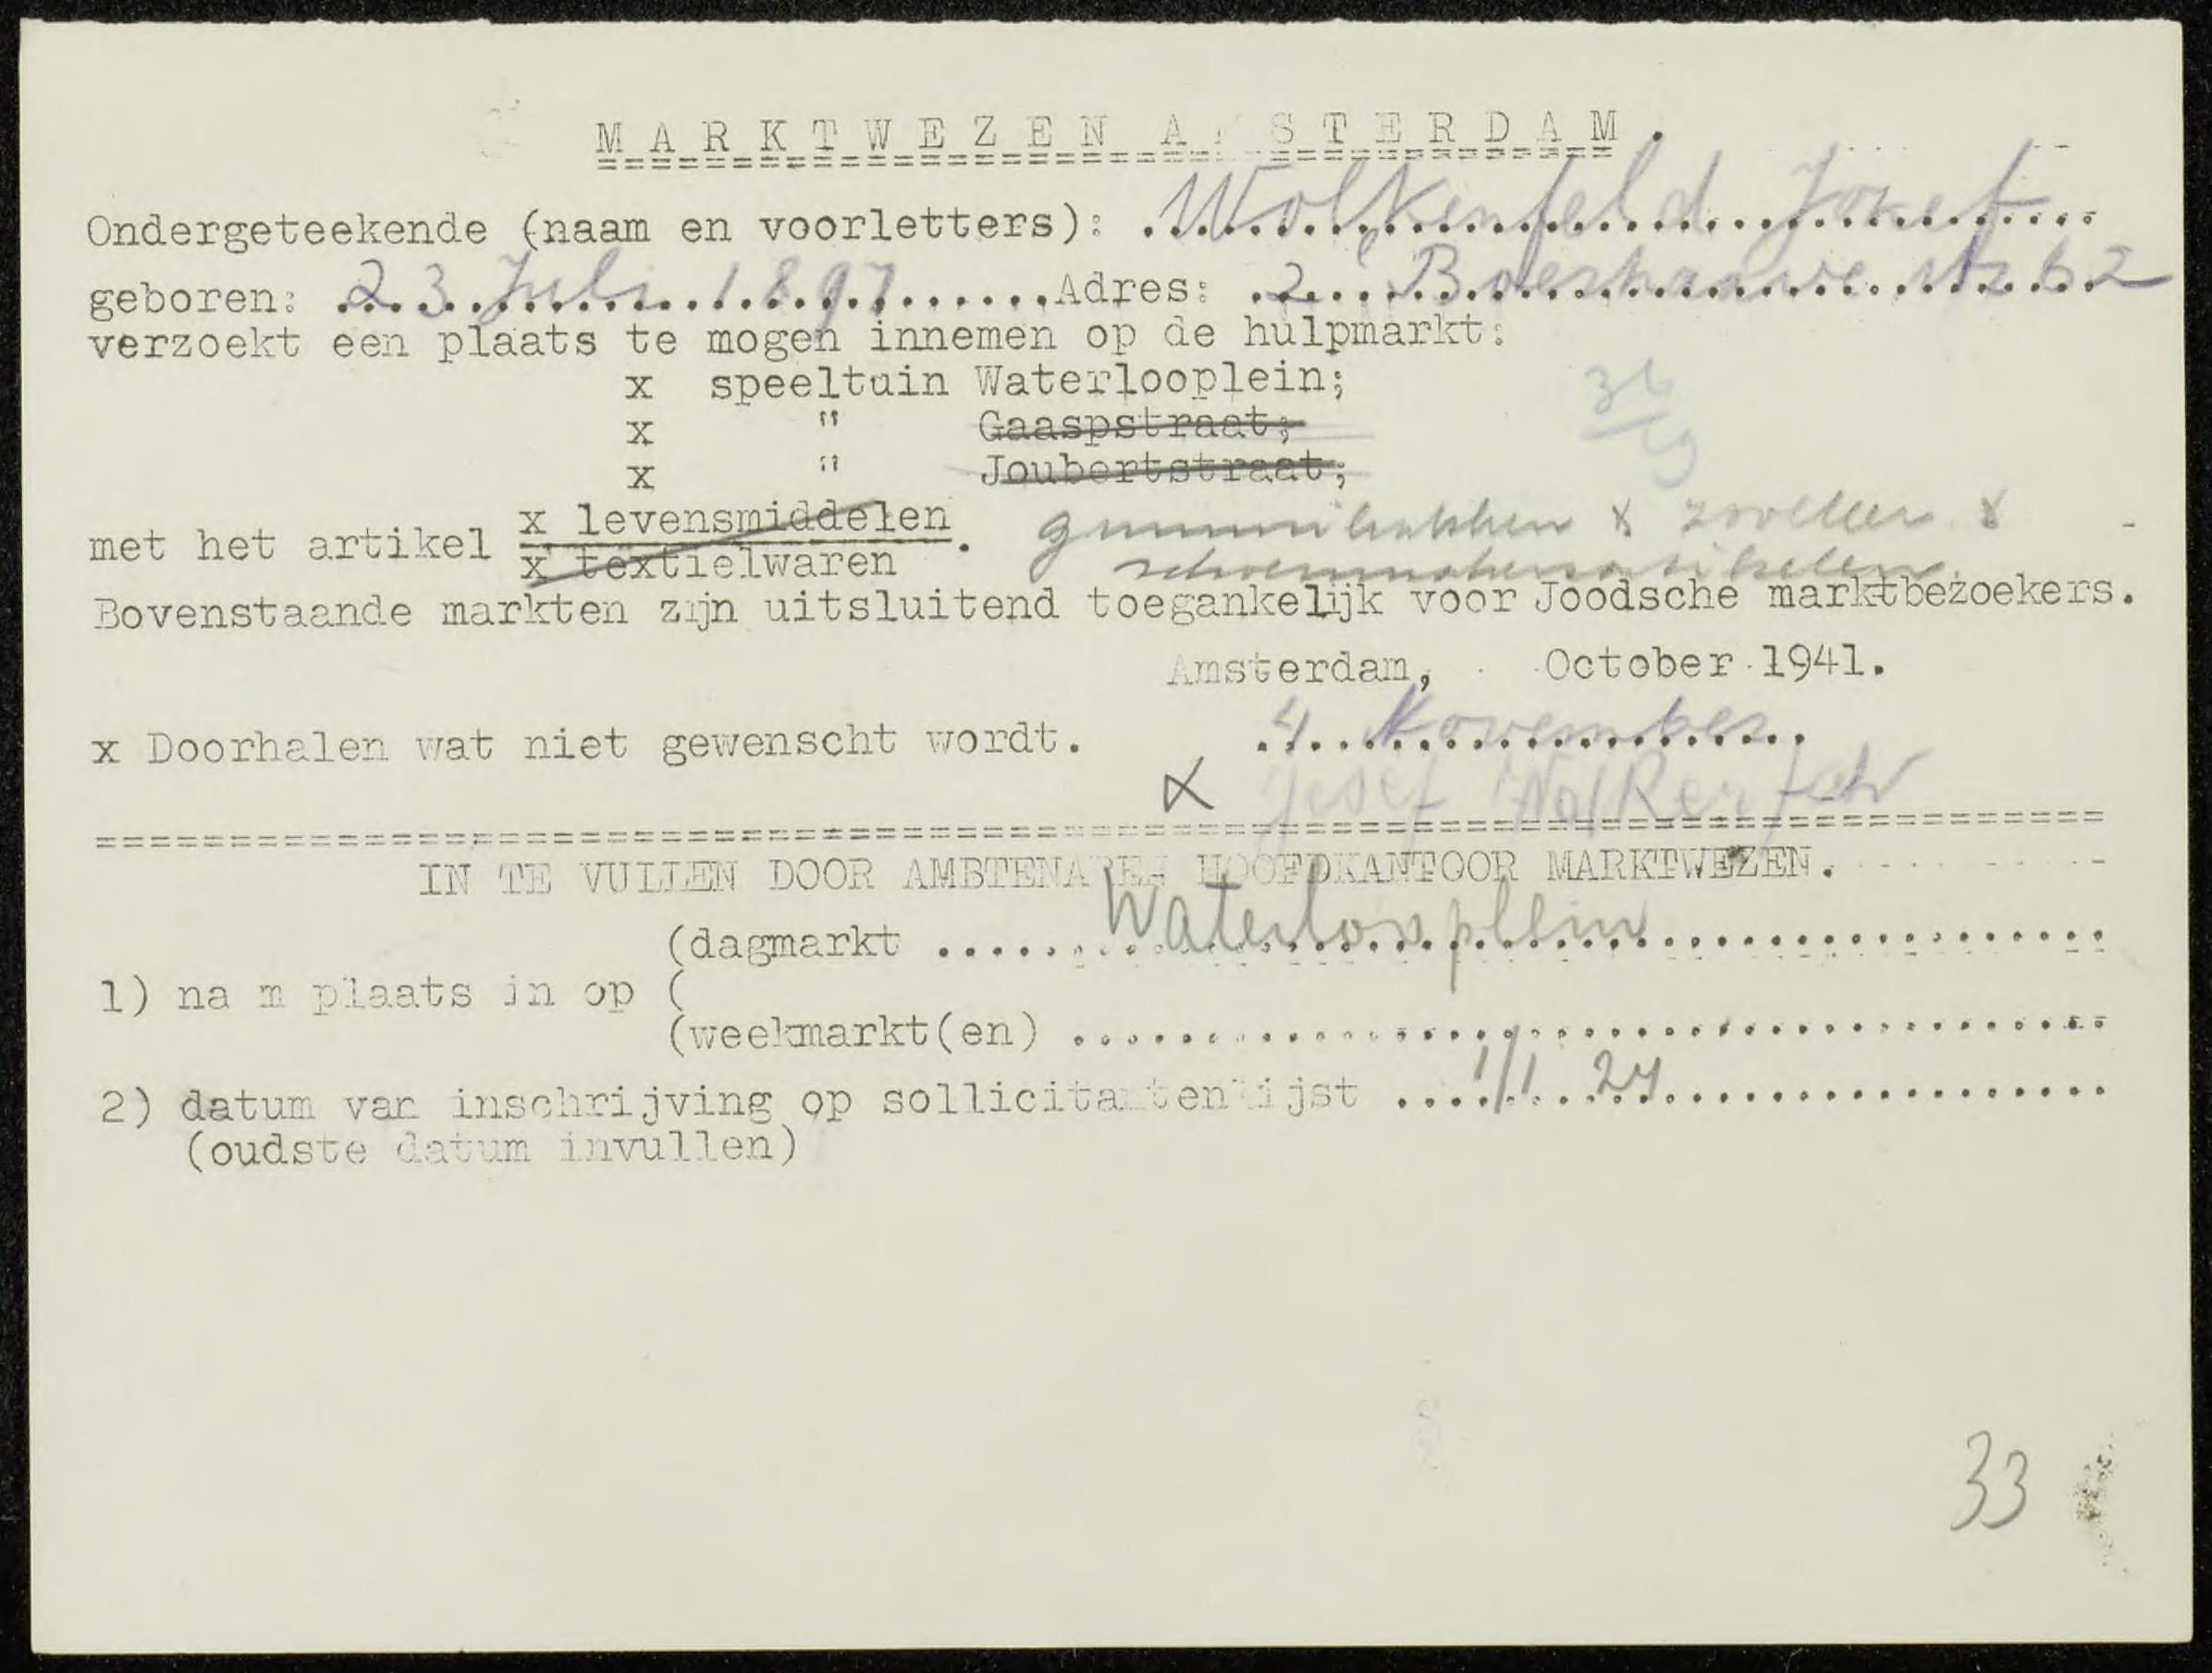 MARKTWEZEN AMSTERDAM.
Ondergeteekende (naam en voorletters): Wolkenfeld Jozef
geboren: 23 Juli 1897 Adres: 2e Boerhaave str 62
verzoekt een plaats te mogen innemen op de hulpmarkt:
x speeltuin Waterlooplein;
x " Gaaspstraat;
x " Joubertstraat;
36
met het artikel x levensmiddelen
x textielwaren.
gummihakken & zoollen &
schoenmakersartikelen.
Bovenstaande markten zijn uitsluitend toegankelijk voor Joodsche marktbezoekers.
Amsterdam, October 1941.
x Doorhalen wat niet gewenscht wordt. 4 November
x Josef Wolkenfeld
IN TE VULLEN DOOR AMBTENAREN HOOFDKANTOOR MARKTWEZEN.
(dagmarkt Waterlooplein
1) nam plaats in op (
(weekmarkt(en)
2) datum van inschrijving op sollicitantenlijst 1/1 24
(oudste datum invullen)
33